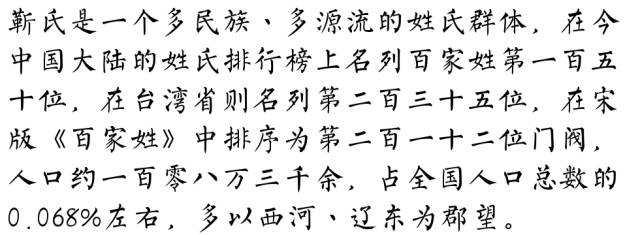 靳氏是一个多民族、多源流的姓氏群体，在今
中国大陆的姓氏排行榜上名列百家姓第一百五
十位，在台湾省则名列第二百三十五位，在宋
版《百家姓》中排序为第二百一十二位门阀，
人口约一百零八万三千余，占全国人口总数的
0.068%左右，多以西河、辽东为郡望。